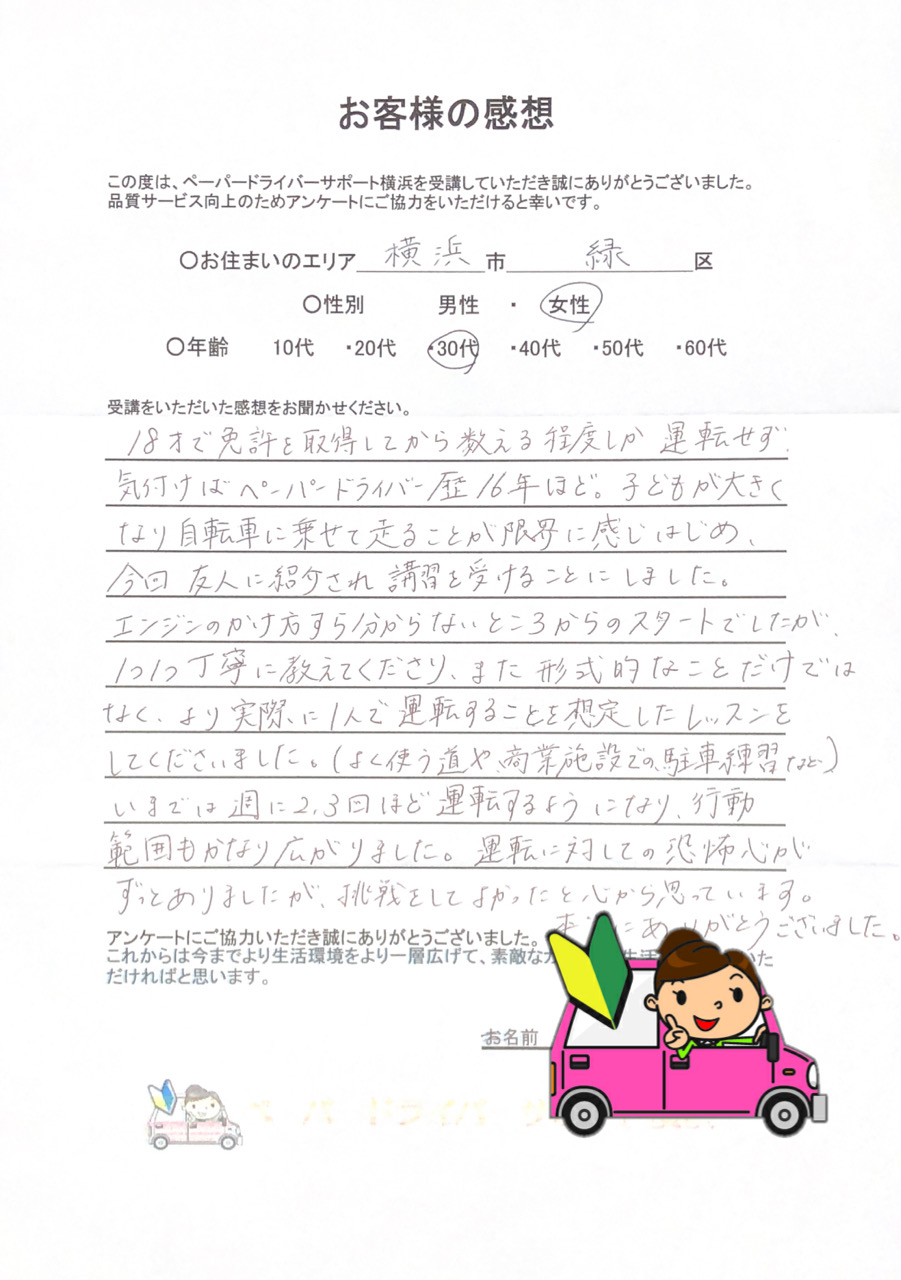 お客様の感想
この度は、ペーパードライバーサポート横浜を受講していただき誠にありがとうございました。
品質サービス向上のためアンケートにご協力をいただけると幸いです。
〇お住まいのエリア 横浜 市 緑 区
〇性別 男性 ・ 女性
〇年齢 10代 ・20代 ・30代 ・40代 ・50代 ・60代
受講をいただいた感想をお聞かせください。
18才で免許を取得してから数える程度しか運転せず、
気付けばペーパードライバー歴16年ほど。子どもが大きく
なり自転車に乗せて走ることが限界に感じはじめ、
今回友人に紹介され講習を受けることにしました。
エンジンのかけ方すら分からないところからのスタートでしたが、
1つ1つ丁寧に教えてくださり、また形式的なことだけでは
なく、より実際に1人で運転することを想定したレッスンを
してくださいました。(よく使う道や、商業施設での駐車練習など)
いまでは週に2,3回ほど運転するようになり、行動
範囲もかなり広がりました。運転に対しての恐怖心が
ずっとありましたが、挑戦をしてよかったと心から思っています。
ありがとうございました。
アンケートにご協力いただき誠にありがとうございました。
これからは今までより生活環境をより一層広げて、素敵な 生活 いた
だければと思います。
お名前